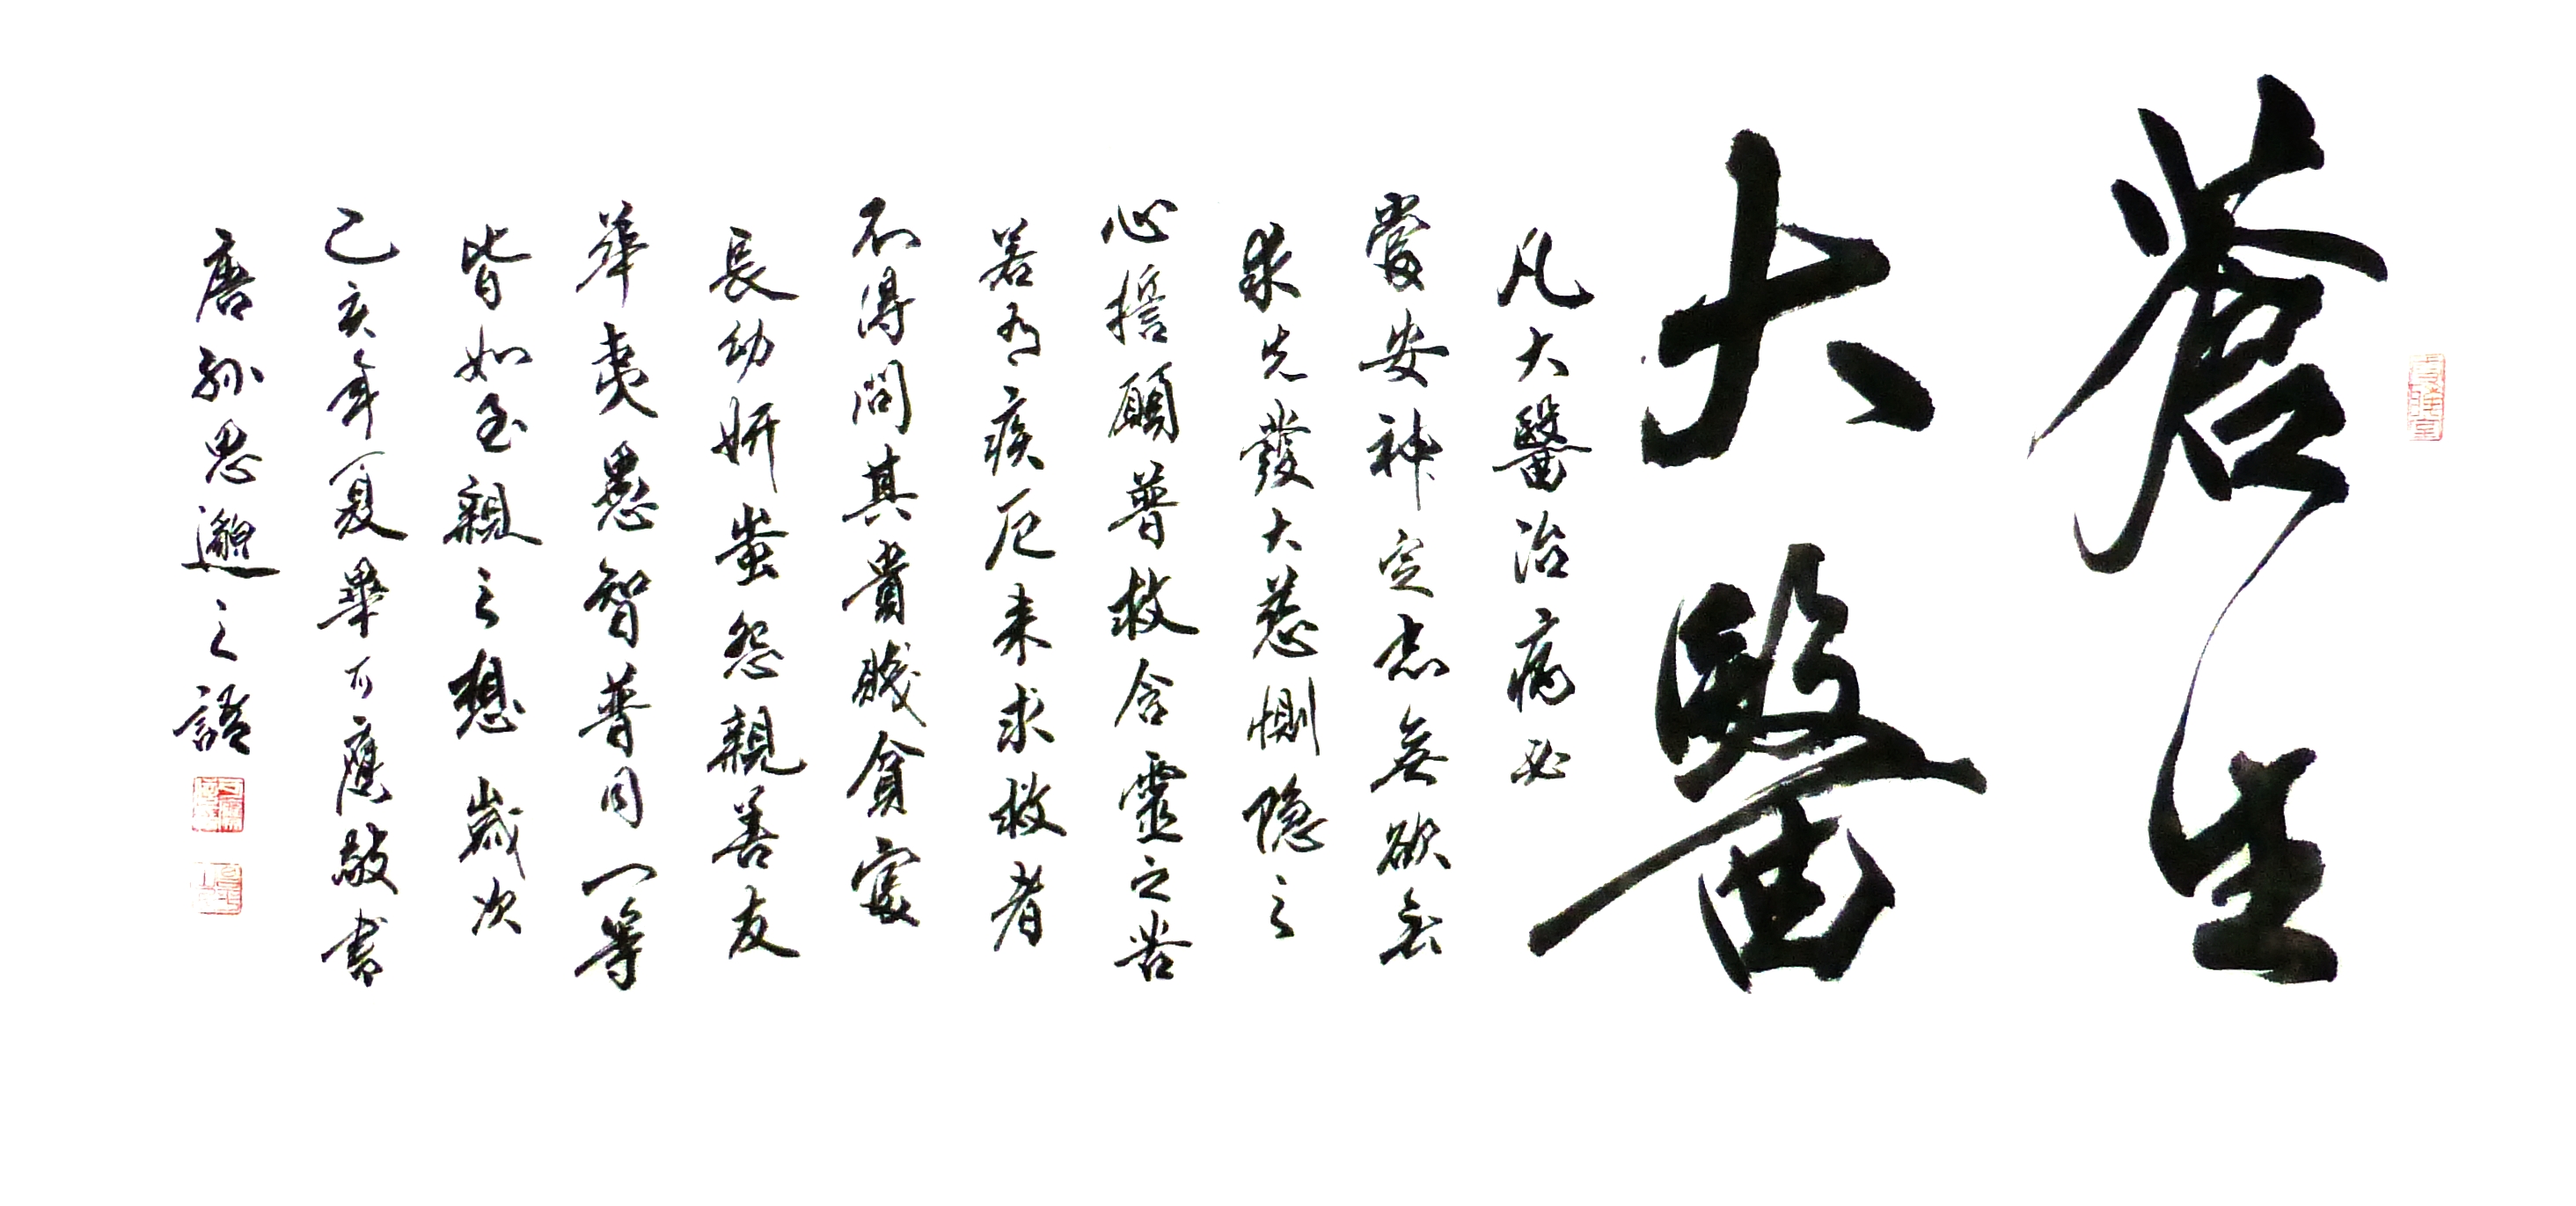 蒼生
大醫
凡大醫治病必
當安神定志無欲無
求先發大慈惻隱之
心誓願普救含靈之苦
若有疾厄來求救者
不得問其貴賤貧富
長幼妍蚩怨親善友
華夷愚智普同一等
皆如至親之想歲次
己亥年夏畢可鷹敬書
唐孫思邈之語